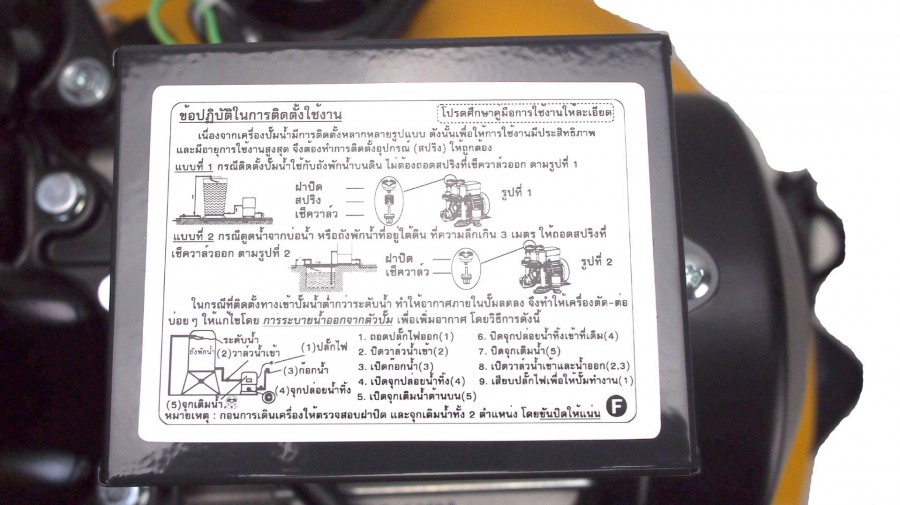 ข้อปฏิบัติในการติดตั้งใช้งาน
โปรดศึกษาคู่มือการใช้งานให้ละเอียด
เนื่องจากเครื่องปั๊มน้ำมีการติดตั้งหลากหลายรูปแบบ ดังนั้นเพื่อให้การใช้งานมีประสิทธิภาพ
และมีอายุการใช้งานสูงสุด จึงต้องทำการติดตั้งอุปกรณ์ (สปริง) ให้ถูกต้อง
แบบที่ 1 กรณีติดตั้งปั๊มน้ำใช้กับถังพักน้ำบนดิน ไม่ต้องถอดสปริงที่เช็ควาล์วออก ตามรูปที่ 1
ฝาปิด
สปริง
เช็ควาล์ว
รูปที่ 1
แบบที่ 2 กรณีดูดน้ำจากบ่อน้ำ หรือถังพักน้ำที่อยู่ใต้ดิน ที่ความลึกเกิน 3 เมตร ให้ถอดสปริงที่
เช็ควาล์วออก ตามรูปที่ 2
ฝาปิด
เช็ควาล์ว
รูปที่ 2
ในกรณีที่ติดตั้งทางเข้าปั๊มน้ำต่ำกว่าระดับน้ำ ทำให้อากาศภายในปั๊มลดลง จึงทำให้เครื่องตัด-ต่อ
บ่อยๆ ให้แก้ไขโดย การระบายน้ำออกจากตัวปั๊ม เพื่อเพิ่มอากาศ โดยวิธีการดังนี้
ระดับน้ำ
ถังพักน้ำ
(2)วาล์วน้ำเข้า
(1)ปลั๊กไฟ
(3)ก๊อกน้ำ
(4)จุกปล่อยน้ำทิ้ง
(5)จุกเติมน้ำ
1. ถอดปลั๊กไฟออก(1)
2. ปิดวาล์วน้ำเข้า(2)
3. เปิดก๊อกน้ำ(3)
4. เปิดจุกปล่อยน้ำทิ้ง(4)
5. เปิดจุกเติมน้ำด้านบน(5)
6. ปิดจุกปล่อยน้ำทิ้งเข้าที่เดิม(4)
7. ปิดจุกเติมน้ำ(5)
8. เปิดวาล์วน้ำเข้าและน้ำออก(2,3)
9. เสียบปลั๊กไฟเพื่อให้ปั๊มทำงาน(1)
หมายเหตุ : ก่อนการเดินเครื่องให้ตรวจสอบฝาปิด และจุกเติมน้ำทั้ง 2 ตำแหน่ง โดยขันปิดให้แน่น
F